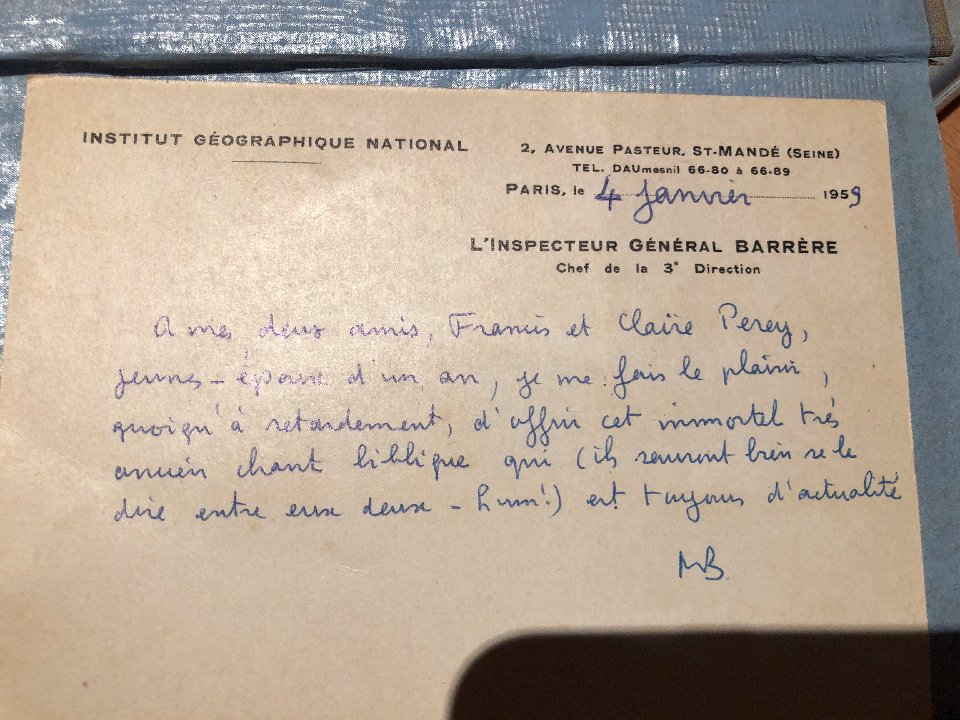 INSTITUT GÉOGRAPHIQUE NATIONAL
2, AVENUE PASTEUR, ST-MANDÉ (SEINE)
TEL. DAUmesnil 66-80 à 66-89
PARIS, le 4 janvier 1959
L'INSPECTEUR GÉNÉRAL BARRÈRE
Chef de la 3e Direction
A mes deux amis, Francis et Claire Perey,
jeunes-époux d'un an, je me fais le plaisir,
quoiqu'à retardement, d'offrir cet immortel très
ancien chant biblique qui (ils sauront bien se le
dire entre eux deux - hum!) est toujours d'actualité
MB.